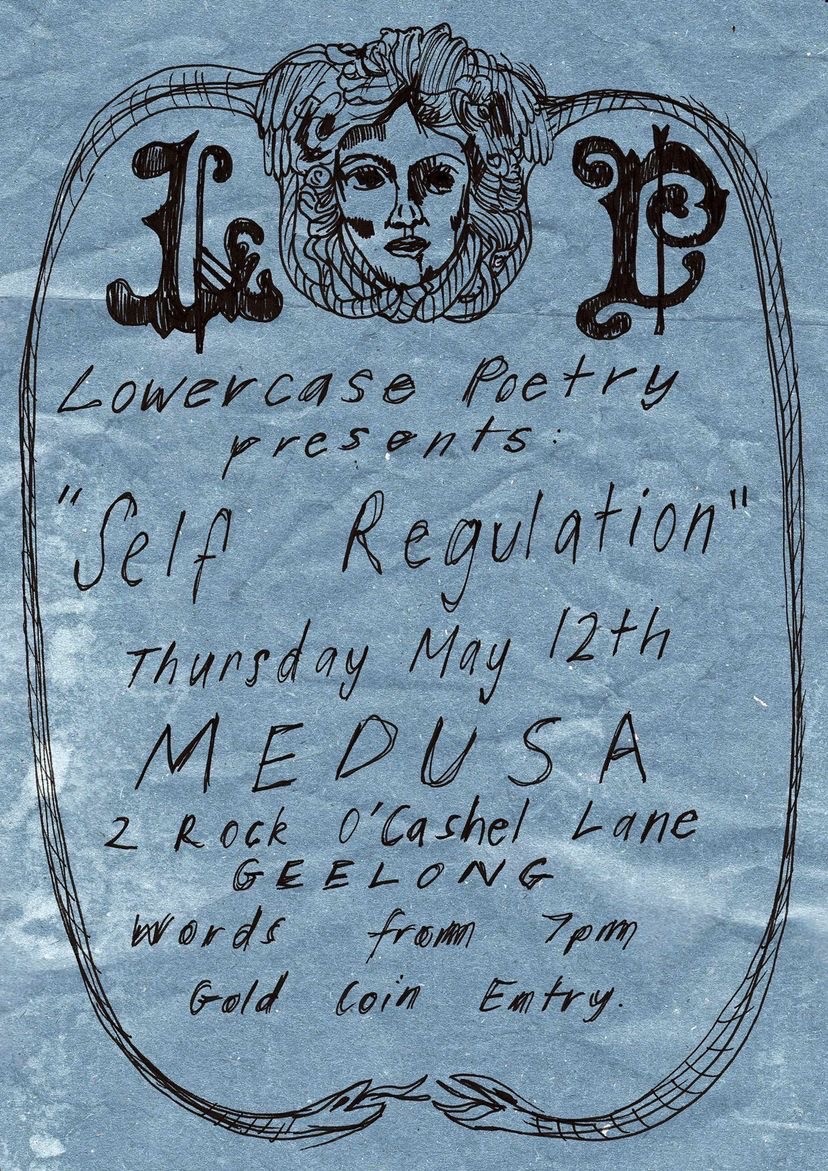 L P
Lowercase Poetry
presents:
"Self Regulation"
Thursday May 12th
MEDUSA
2 Rock O'Cashel Lane
GEELONG
Words from 7pm
Gold Coin Entry.